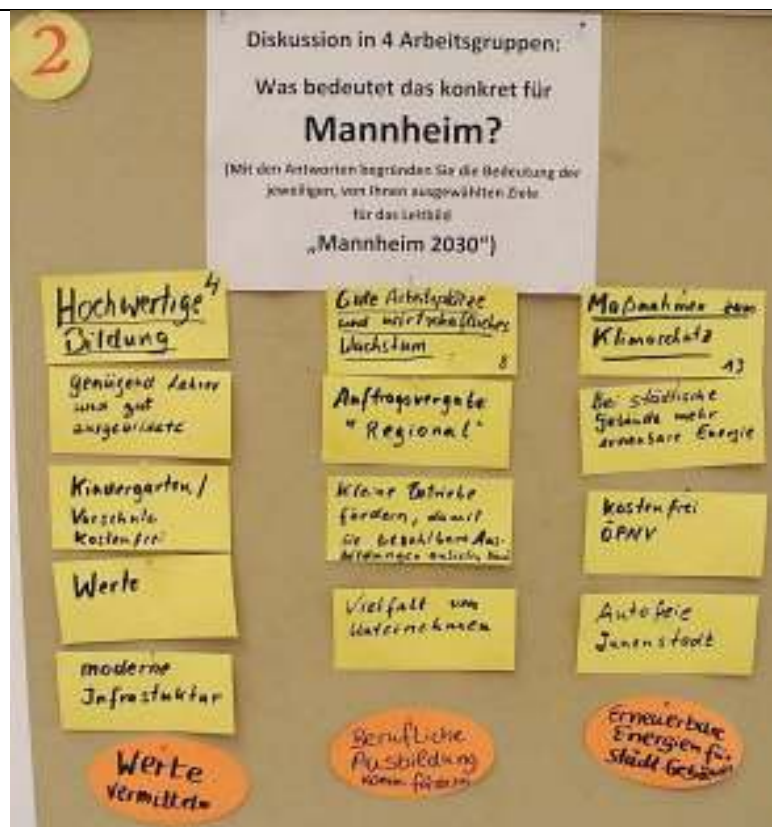 2
Diskussion in 4 Arbeitsgruppen:
Was bedeutet das konkret für
Mannheim?
(Mit den Antworten begründen Sie die Bedeutung der
jeweiligen, von Ihnen ausgewählten Ziele
für das Leitbild
„Mannheim 2030")
Hochwertige 4
Bildung
genügend Lehrer
und gut
ausgebildete
Kindergarten/
Vorschule
kostenfrei
Werte
moderne
Infrastuktur
Werte
vermitteln
Gute Arbeitsplätze
und wirtschaftliches
Wachstum
8
Auftragsvergabe
"Regional"
Kleine Betriebe
fördern, damit
sie bezahlbare Aus-
bildungen
Vielfalt von
Unternehmen
Berufliche
Ausbildung
fördern
Maßnahmen zum
Klimaschutz
13
Bei städtische
Gebäude mehr
erneubare Energie
kostenfrei
ÖPNV
Autofeie
Innenstadt
Erneuerbare
Energien für
städt. Gebäude